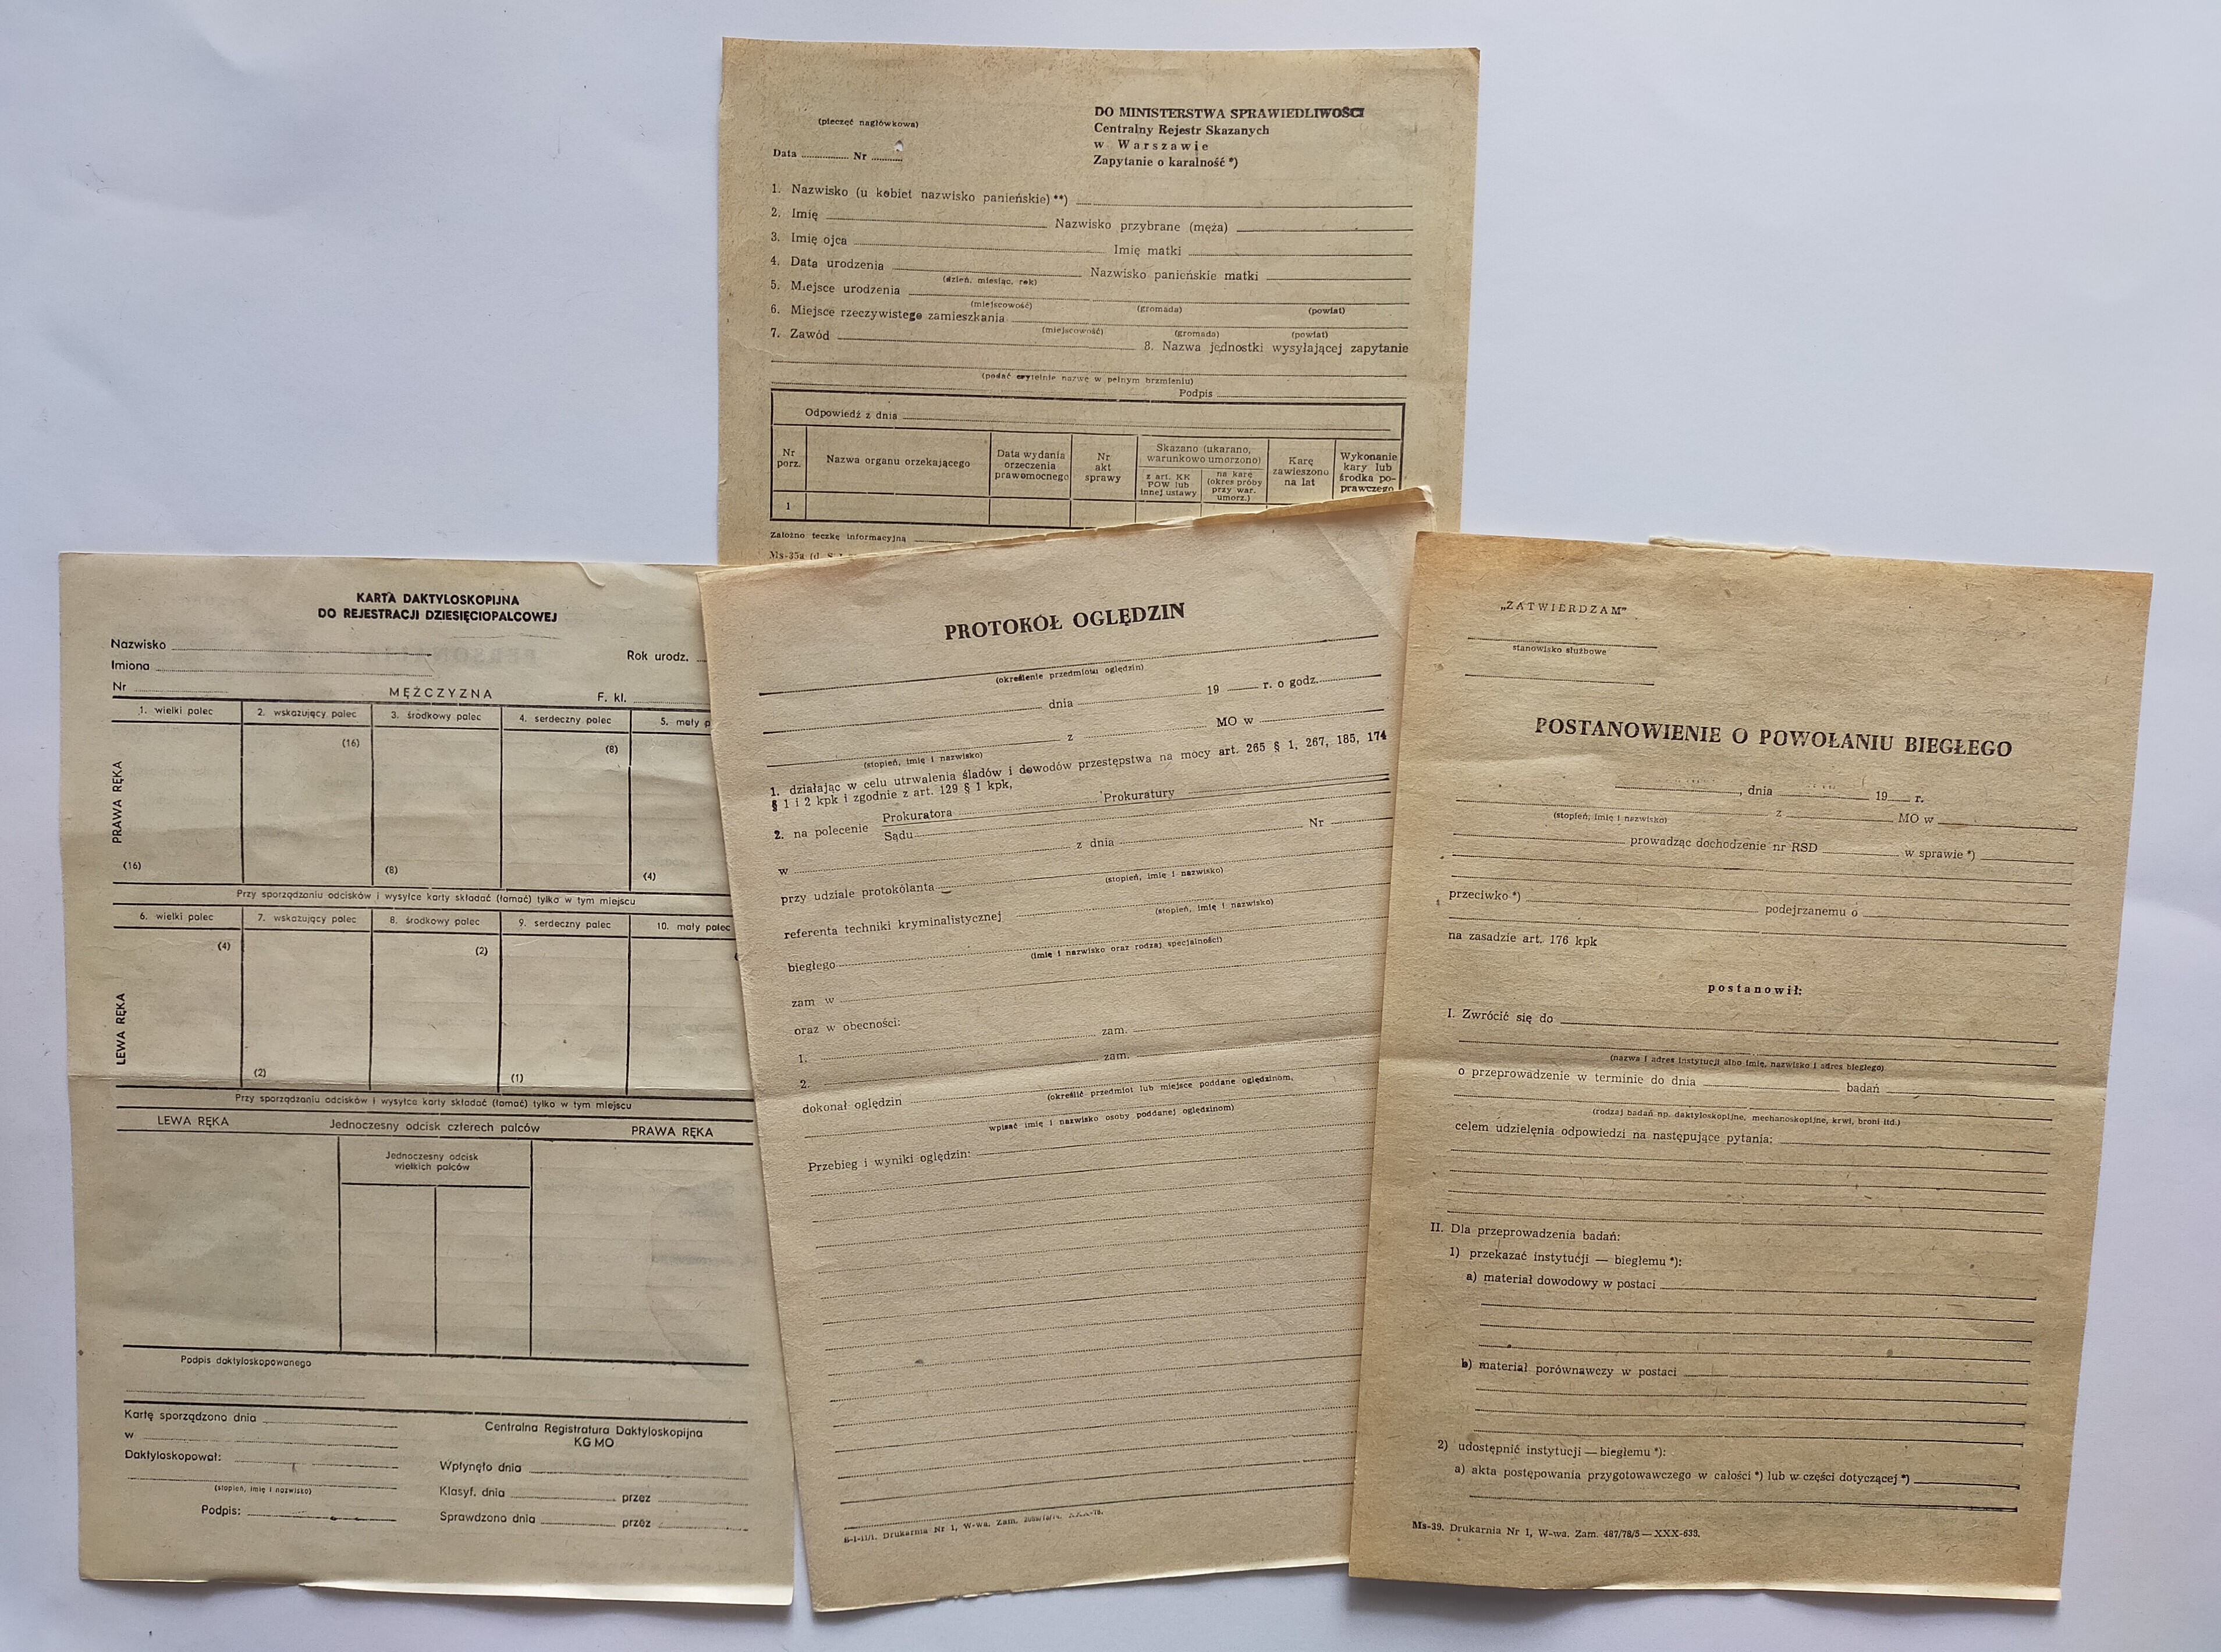 (pieczęć nagłówkowa)
Data Nr
DO MINISTERSTWA SPRAWIEDLIWOŚCI
Centralny Rejestr Skazanych
w Warszawie
Zapytanie o karalność *)
1. Nazwisko (u kobiet nazwisko panieńskie) **)
2. Imię Nazwisko przybrane (męża)
3. Imię ojca Imię matki
4. Data urodzenia Nazwisko panieńskie matki
(dzień, miesiąc, rok)
5. Miejsce urodzenia
(miejscowość) (gromada) (powiat)
6. Miejsce rzeczywistego zamieszkania
(miejscowość) (gromada) (powiat)
7. Zawód 8. Nazwa jednostki wysyłającej zapytanie
(podać czytelnie nazwę w pełnym brzmieniu)
Podpis
Odpowiedź z dnia
Nr porz.
Nazwa organu orzekającego
Data wydania orzeczenia prawomocnego
Nr akt sprawy
Skazano (ukarano, warunkowo umorzono)
z art. KK POW lub innej ustawy
na karę (okres próby przy war. umorz.)
Karę zawieszono na lat
Wykonanie kary lub środka poprawczego
1
Założno teczkę informacyjną
Ms-35a
KARTA DAKTYLOSKOPIJNA
DO REJESTRACJI DZIESIĘCIOPALCOWEJ
Nazwisko
Imiona Rok urodz.
Nr MĘŻCZYZNA F. kl.
1. wielki palec 2. wskazujący palec 3. środkowy palec 4. serdeczny palec 5. mały
PRAWA RĘKA
(16) (8)
(16) (8) (4)
Przy sporządzaniu odcisków i wysyłce karty składać (łamać) tylko w tym miejscu
6. wielki palec 7. wskazujący palec 8. środkowy palec 9. serdeczny palec 10. mały palec
LEWA RĘKA
(4) (2)
(2) (1)
Przy sporządzaniu odcisków i wysyłce karty składać (łamać) tylko w tym miejscu
LEWA RĘKA Jednoczesny odcisk czterech palców PRAWA RĘKA
Jednoczesny odcisk
wielkich palców
Podpis daktyloskopowanego
Kartę sporządzono dnia
w
Daktyloskopował:
(stopień, imię i nazwisko)
Podpis:
Centralna Registratura Daktyloskopijna
KG MO
Wpłynęło dnia
Klasyf. dnia przez
Sprawdzono dnia przez
PROTOKÓŁ OGLĘDZIN
(określenie przedmiotu oględzin)
dnia 19 r. o godz.
z MO w
(stopień, imię i nazwisko)
1. działając w celu utrwalenia śladów i dowodów przestępstwa na mocy art. 265 § 1, 267, 185, 174
§ 1 i 2 kpk i zgodnie z art. 129 § 1 kpk,
2. na polecenie Prokuratora Prokuratury
Sądu
w z dnia Nr
przy udziale protokólanta
(stopień, imię i nazwisko)
referenta techniki kryminalistycznej
(stopień, imię i nazwisko)
biegłego
(imię i nazwisko oraz rodzaj specjalności)
zam w
oraz w obecności:
1. zam.
2. zam.
dokonał oględzin
(określić przedmiot lub miejsce poddane oględzinom,
wpisać imię i nazwisko osoby poddanej oględzinom)
Przebieg i wyniki oględzin:
Drukarnia Nr 1, W-wa. Zam.
„ZATWIERDZAM”
stanowisko służbowe
POSTANOWIENIE O POWOŁANIU BIEGŁEGO
, dnia 19 r.
z MO w
(stopień, imię i nazwisko)
prowadząc dochodzenie nr RSD w sprawie *)
przeciwko *) podejrzanemu o
na zasadzie art. 176 kpk
postanowił:
I. Zwrócić się do
(nazwa i adres instytucji albo imię, nazwisko i adres biegłego)
o przeprowadzenie w terminie do dnia badań
(rodzaj badań np. daktyloskopijne, mechanoskopijne, krwi, broni itd.)
celem udzielęnia odpowiedzi na następujące pytania:
II. Dla przeprowadzenia badań:
1) przekazać instytucji — biegłemu *):
a) materiał dowodowy w postaci
b) materiał porównawczy w postaci
2) udostępnić instytucji — biegłemu *):
a) akta postępowania przygotowawczego w całości *) lub w części dotyczącej *)
Ms-39. Drukarnia Nr 1, W-wa. Zam. 487/78/S — XXX-633.